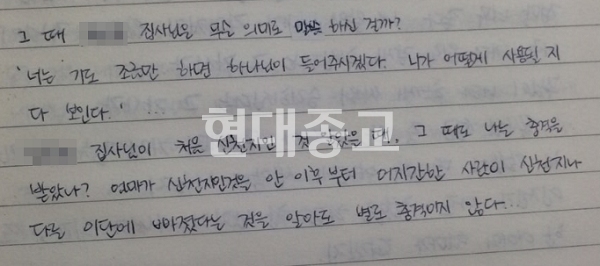 그 때 집사님은 무슨 의미로 말씀 하신 걸까?
'너는' 기도 조금만 하면 하나님이 들어주시겠다. 니가 어떻게 사용될 지
다 보인다.' ...
현대종교
집사님이 처음 신천지인 걸 알았을 땐. 그 때도 나는 충격을
받았나? 엄마가 신천지인것을 안 이후부터 어지간한 사람이 신천지나
다른 이단에 빠졌다는 것을 알아도 별로 충격이지 않다...